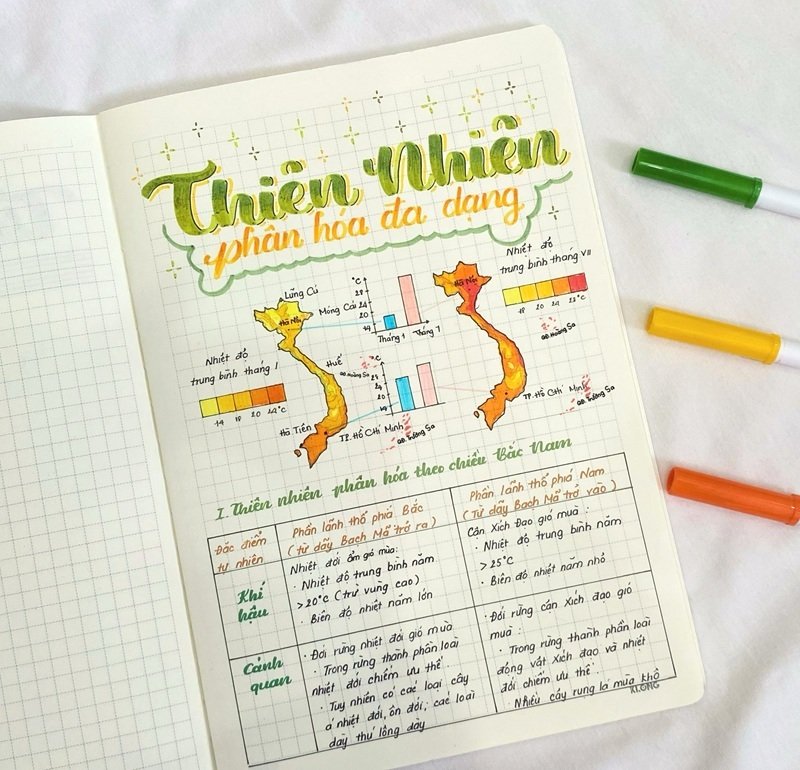 Thiên Nhiên
phân hóa đa dạng
Nhiệt độ
trung bình tháng VII
14 18 20 24 28°C
Lũng Cú
Hà Nội
Móng Cái
°C
28
24
20
14
Tháng 1 Tháng 7
Hà Nội
QĐ. Hoàng Sa
Nhiệt độ
trung bình tháng I
14 18 20 24°C
Huế
QĐ. Hoàng Sa
°C
24
14
Hà Tiên
TP. Hồ Chí Minh
QĐ. Trường Sa
TP. Hồ Chí Minh
QĐ. Trường Sa
I. Thiên nhiên phân hóa theo chiều Bắc Nam
Đặc điểm
tự nhiên
Phần lãnh thổ phiá Bắc
(từ dãy Bạch Mã trở ra)
Phần lãnh thổ phiá Nam
(Từ dãy Bạch Mã trở vào)
Khí
hậu
Nhiệt đới ẩm gió mùa:
· Nhiệt độ trung bình năm
>20°C (trừ vùng cao)
· Biên độ nhiệt năm lớn
Cận Xích Đạo gió mùa:
· Nhiệt độ trung bình năm
>25°C
· Biên độ nhiệt năm nhỏ
Cảnh
quan
· Đới rừng nhiệt đới gió mùa
· Trong rừng thành phần loài
nhiệt đới chiếm ưu thế.
· Tuy nhiên có các loại cây
á nhiệt đới, ôn đới; các loài
dày thú lông dày
· Đới rừng cận Xích đạo gió
mùa:
· Trong rừng thành phần loài
động vật Xích đạo và nhiệt
đới chiếm ưu thế.
· Nhiều cây rụng lá mùa khô
KLONG